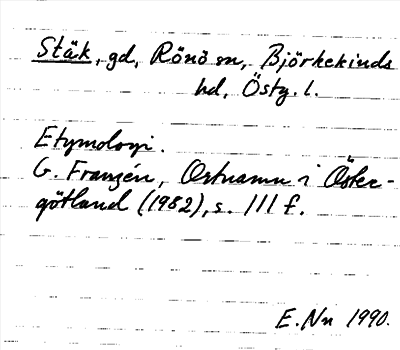 Stäk, gd, Rönö sn, Björkekinds
hd, Östg. l.
Etymologi.
G. Franzén, Ortnamn i Öster-
götland (1982), s. 111 f.
E. Nn 1990.